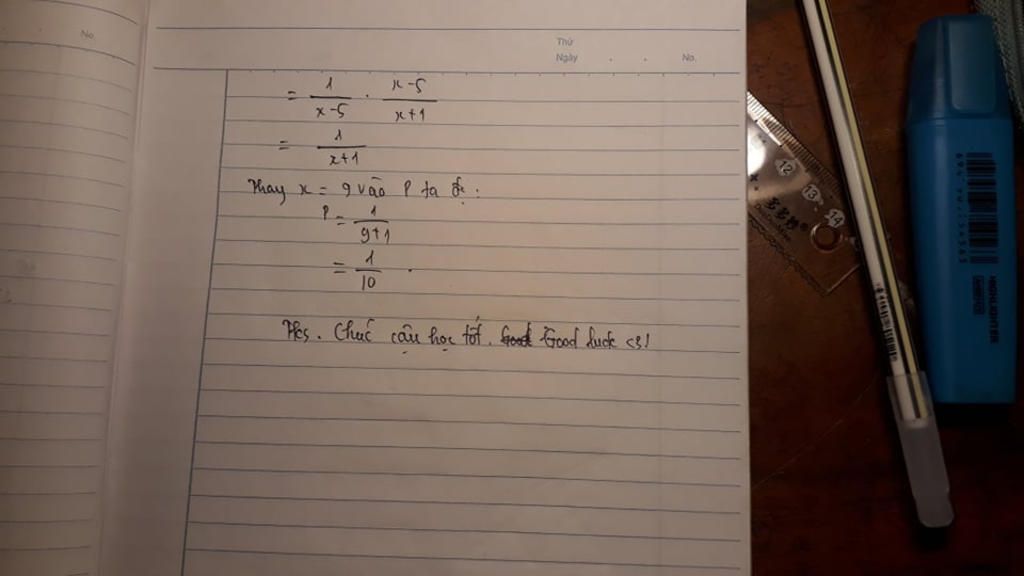 No.
Thứ
Ngày . . No.
= 1/(x-5) . (x-5)/(x+1)
= 1/(x+1)
Thay x = 9 vào P ta đc:
P = 1/(9+1)
= 1/10 .
Chúc cậu học tốt. Good Good luck <3!
12
13
14
HIGHLIGHTER